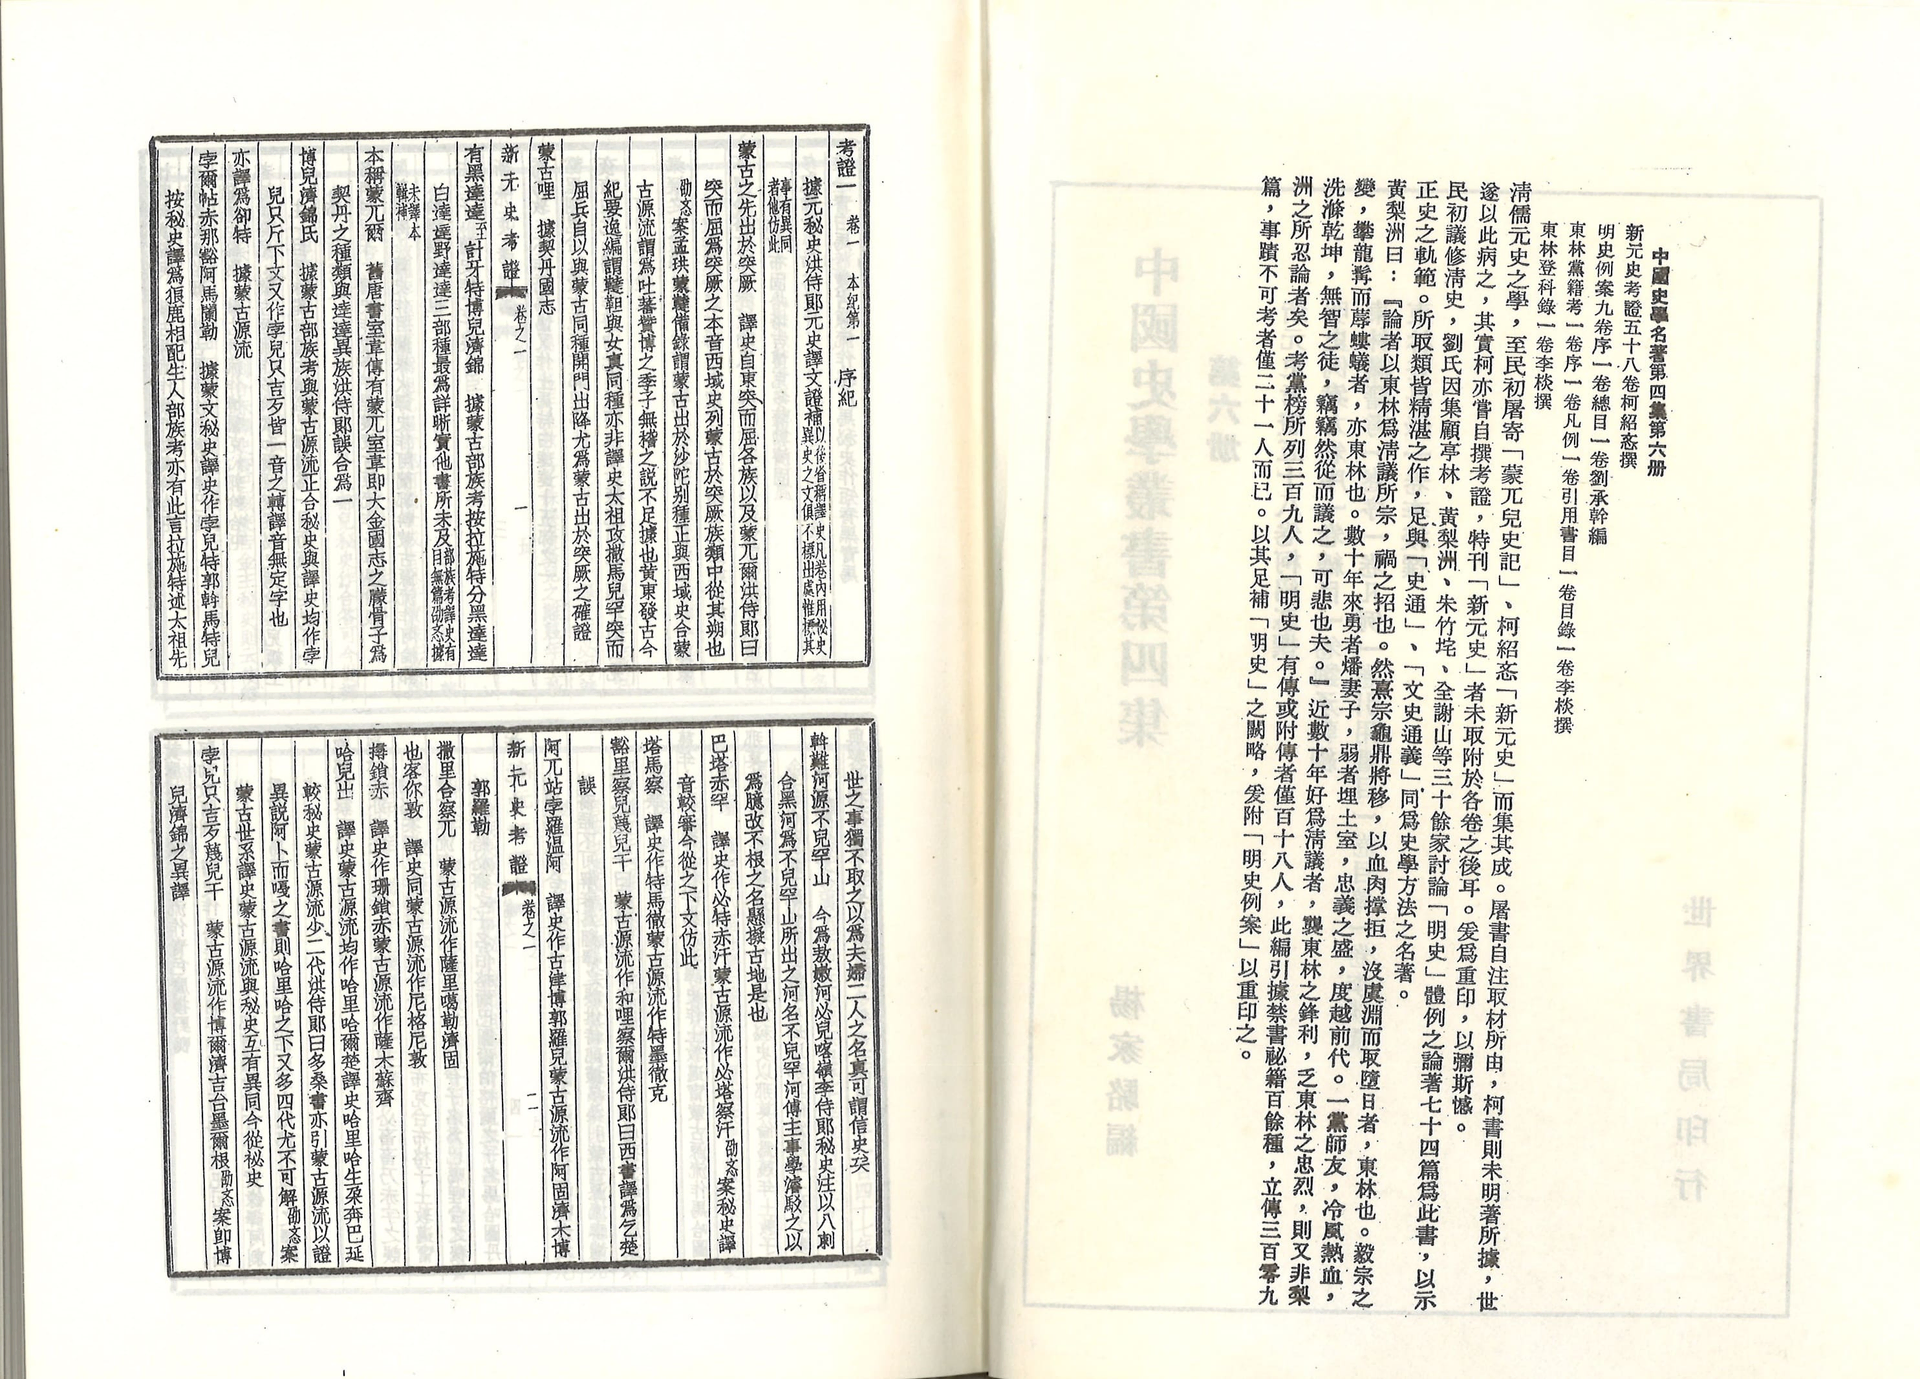 中國史學名著第四集第六册
新元史考證五十八卷柯紹忞撰
明史例案九卷序一卷總目一卷劉承幹編
東林黨籍考一卷序一卷凡例一卷引用書目一卷目錄一卷李棪撰
東林登科錄一卷李棪撰
清儒元史之學，至民初屠寄「蒙兀兒史記」、柯紹忞「新元史」而集其成。屠書自注取材所由，柯書則未明著所據，世
遂以此病之，其實柯亦嘗自撰考證，特刊「新元史」者未取附於各卷之後耳。爰爲重印，以彌斯憾。
民初議修清史，劉氏因集顧亭林、黃梨洲、朱竹垞、全謝山等三十餘家討論「明史」體例之論著七十四篇爲此書，以示
正史之軌範。所取類皆精湛之作，足與「史通」、「文史通義」同爲史學方法之名著。
黃梨洲曰：『論者以東林爲清議所宗，禍之招也。然熹宗龜鼎將移，以血肉撑拒，沒虞淵而取墜日者，東林也。毅宗之
變，攀龍髯而蓐螻蟻者，亦東林也。數十年來勇者燔妻子，弱者埋土室，忠義之盛，度越前代。一黨師友，冷風熱血，
洗滌乾坤，無智之徒，竊竊然從而議之，可悲也夫。』近數十年好爲清議者，襲東林之鋒利，乏東林之忠烈，則又非梨
洲之所忍論者矣。考黨榜所列三百九人，「明史」有傳或附傳者僅百十八人，此編引據禁書祕籍百餘種，立傳三百零九
篇，事蹟不可考者僅二十一人而已。以其足補「明史」之闕略，爰附「明史例案」以重印之。
考證一 卷一 本紀第一 序紀
據元秘史洪侍郎元史譯文證補以後省稱譯史凡卷內用秘史
異史之文俱不標出處惟標其
事有異同
者他仿此
蒙古之先出於突厥 譯史自東突而屈各族以及蒙兀爾洪侍郎曰
突而屈爲突厥之本音西域史列蒙古於突厥族類中從其朔也
劭忞案孟珙蒙韃備錄謂蒙古出於沙陀別種正與西域史合蒙
古源流謂爲吐蕃贊博之季子無稽之說不足據也黃東發古今
紀要逸編謂韃靼與女真同種亦非譯史太祖攻撒馬兒罕突而
屈兵自以與蒙古同種開門出降尤爲蒙古出於突厥之確證
蒙古哩 據契丹國志
新元史考證 卷之一 一
有黑達達至計牙特博兒濟錦 據蒙古部族考按拉施特分黑達達
白達達野達達三部種最爲詳晰實他書所未及部族考譯史有
目無篇劭忞據
未譯本
輯補
本稱蒙兀爾 舊唐書室韋傳有蒙兀室韋即大金國志之朦骨子爲
契丹之種類與達達異族洪侍郎誤合爲一
博兒濟錦氏 據蒙古部族考與蒙古源流正合秘史與譯史均作孛
兒只斤下文又作孛兒只吉歹皆一音之轉譯音無定字也
亦譯爲卻特 據蒙古源流
孛爾帖赤那豁阿馬蘭勒 據蒙文秘史譯史作孛兒特郭斡馬特兒
按秘史譯爲狼鹿相配生人部族考亦有此言拉施特述太祖先
世之事獨不取之以爲夫婦二人之名真可謂信史矣
斡難河源不兒罕山 今爲敖嫩河必兒喀嶺李侍郎秘史注以八剌
合黑河爲不兒罕山所出之河名不兒罕河傅主事學濬駁之以
爲臆改不根之名懸擬古地是也
巴塔赤罕 譯史作必特赤汗蒙古源流作必塔察汗劭忞案秘史譯
音較審今從之下文仿此
塔馬察 譯史作特馬徹蒙古源流作特墨徹克
豁里察兒蔑兒干 蒙古源流作和哩察爾洪侍郎曰西書譯爲乞楚
誤
阿兀站孛羅溫阿 譯史作古津博郭羅兒蒙古源流作阿固濟木博
新元史考證 卷之一 二
郭羅勒
撒里合察兀 蒙古源流作薩里噶勒濟固
也客你敦 譯史同蒙古源流作尼格尼敦
撏鎖赤 譯史作珊鎖赤蒙古源流作薩木蘇齊
哈兒出 譯史蒙古源流均作哈里哈爾楚譯史哈里哈生孛奔巴延
較秘史蒙古源流少二代洪侍郎曰多桑書亦引蒙古源流以證
異說阿卜而嘎之書則哈里哈之下又多四代尤不可解劭忞案
蒙古世系譯史蒙古源流與秘史互有異同今從祕史
孛兒只吉歹蔑兒干 蒙古源流作博爾濟吉台墨爾根劭忞案即博
兒濟錦之異譯